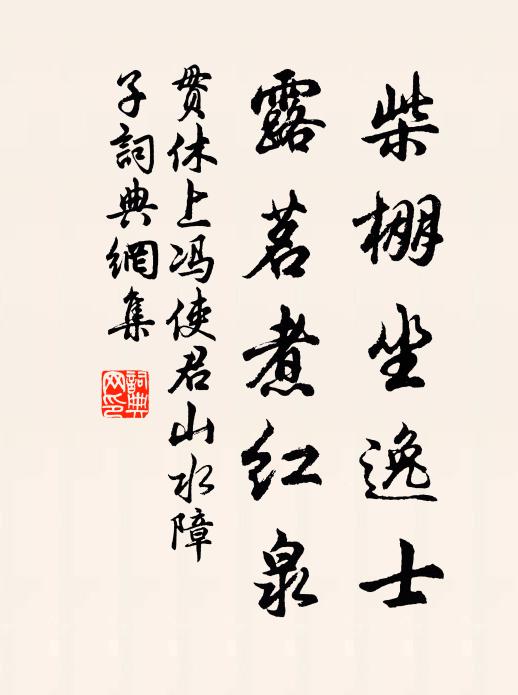 柴棚坐逸士
露茗煮红泉
贯休上冯使君山水障
子詞典網集
詞典
网印